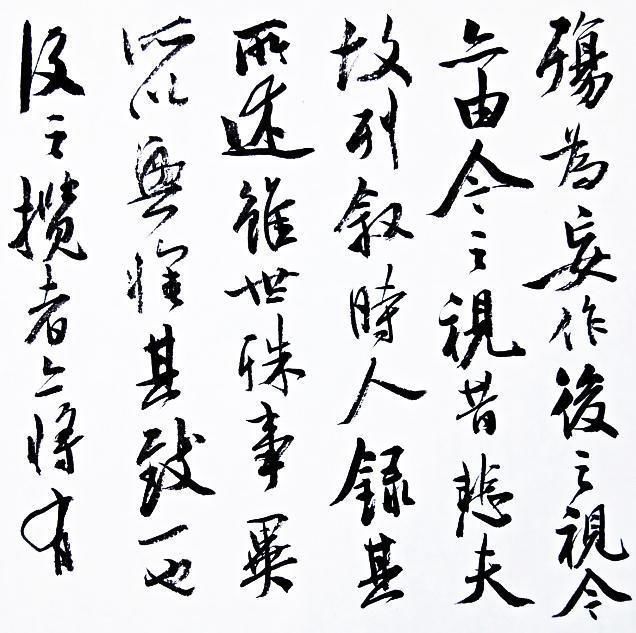 殤為妄作後之視今
亦由今之視昔悲夫
故列敘時人錄其
所述雖世殊事異
所以興懷其致一也
後之攬者亦將有